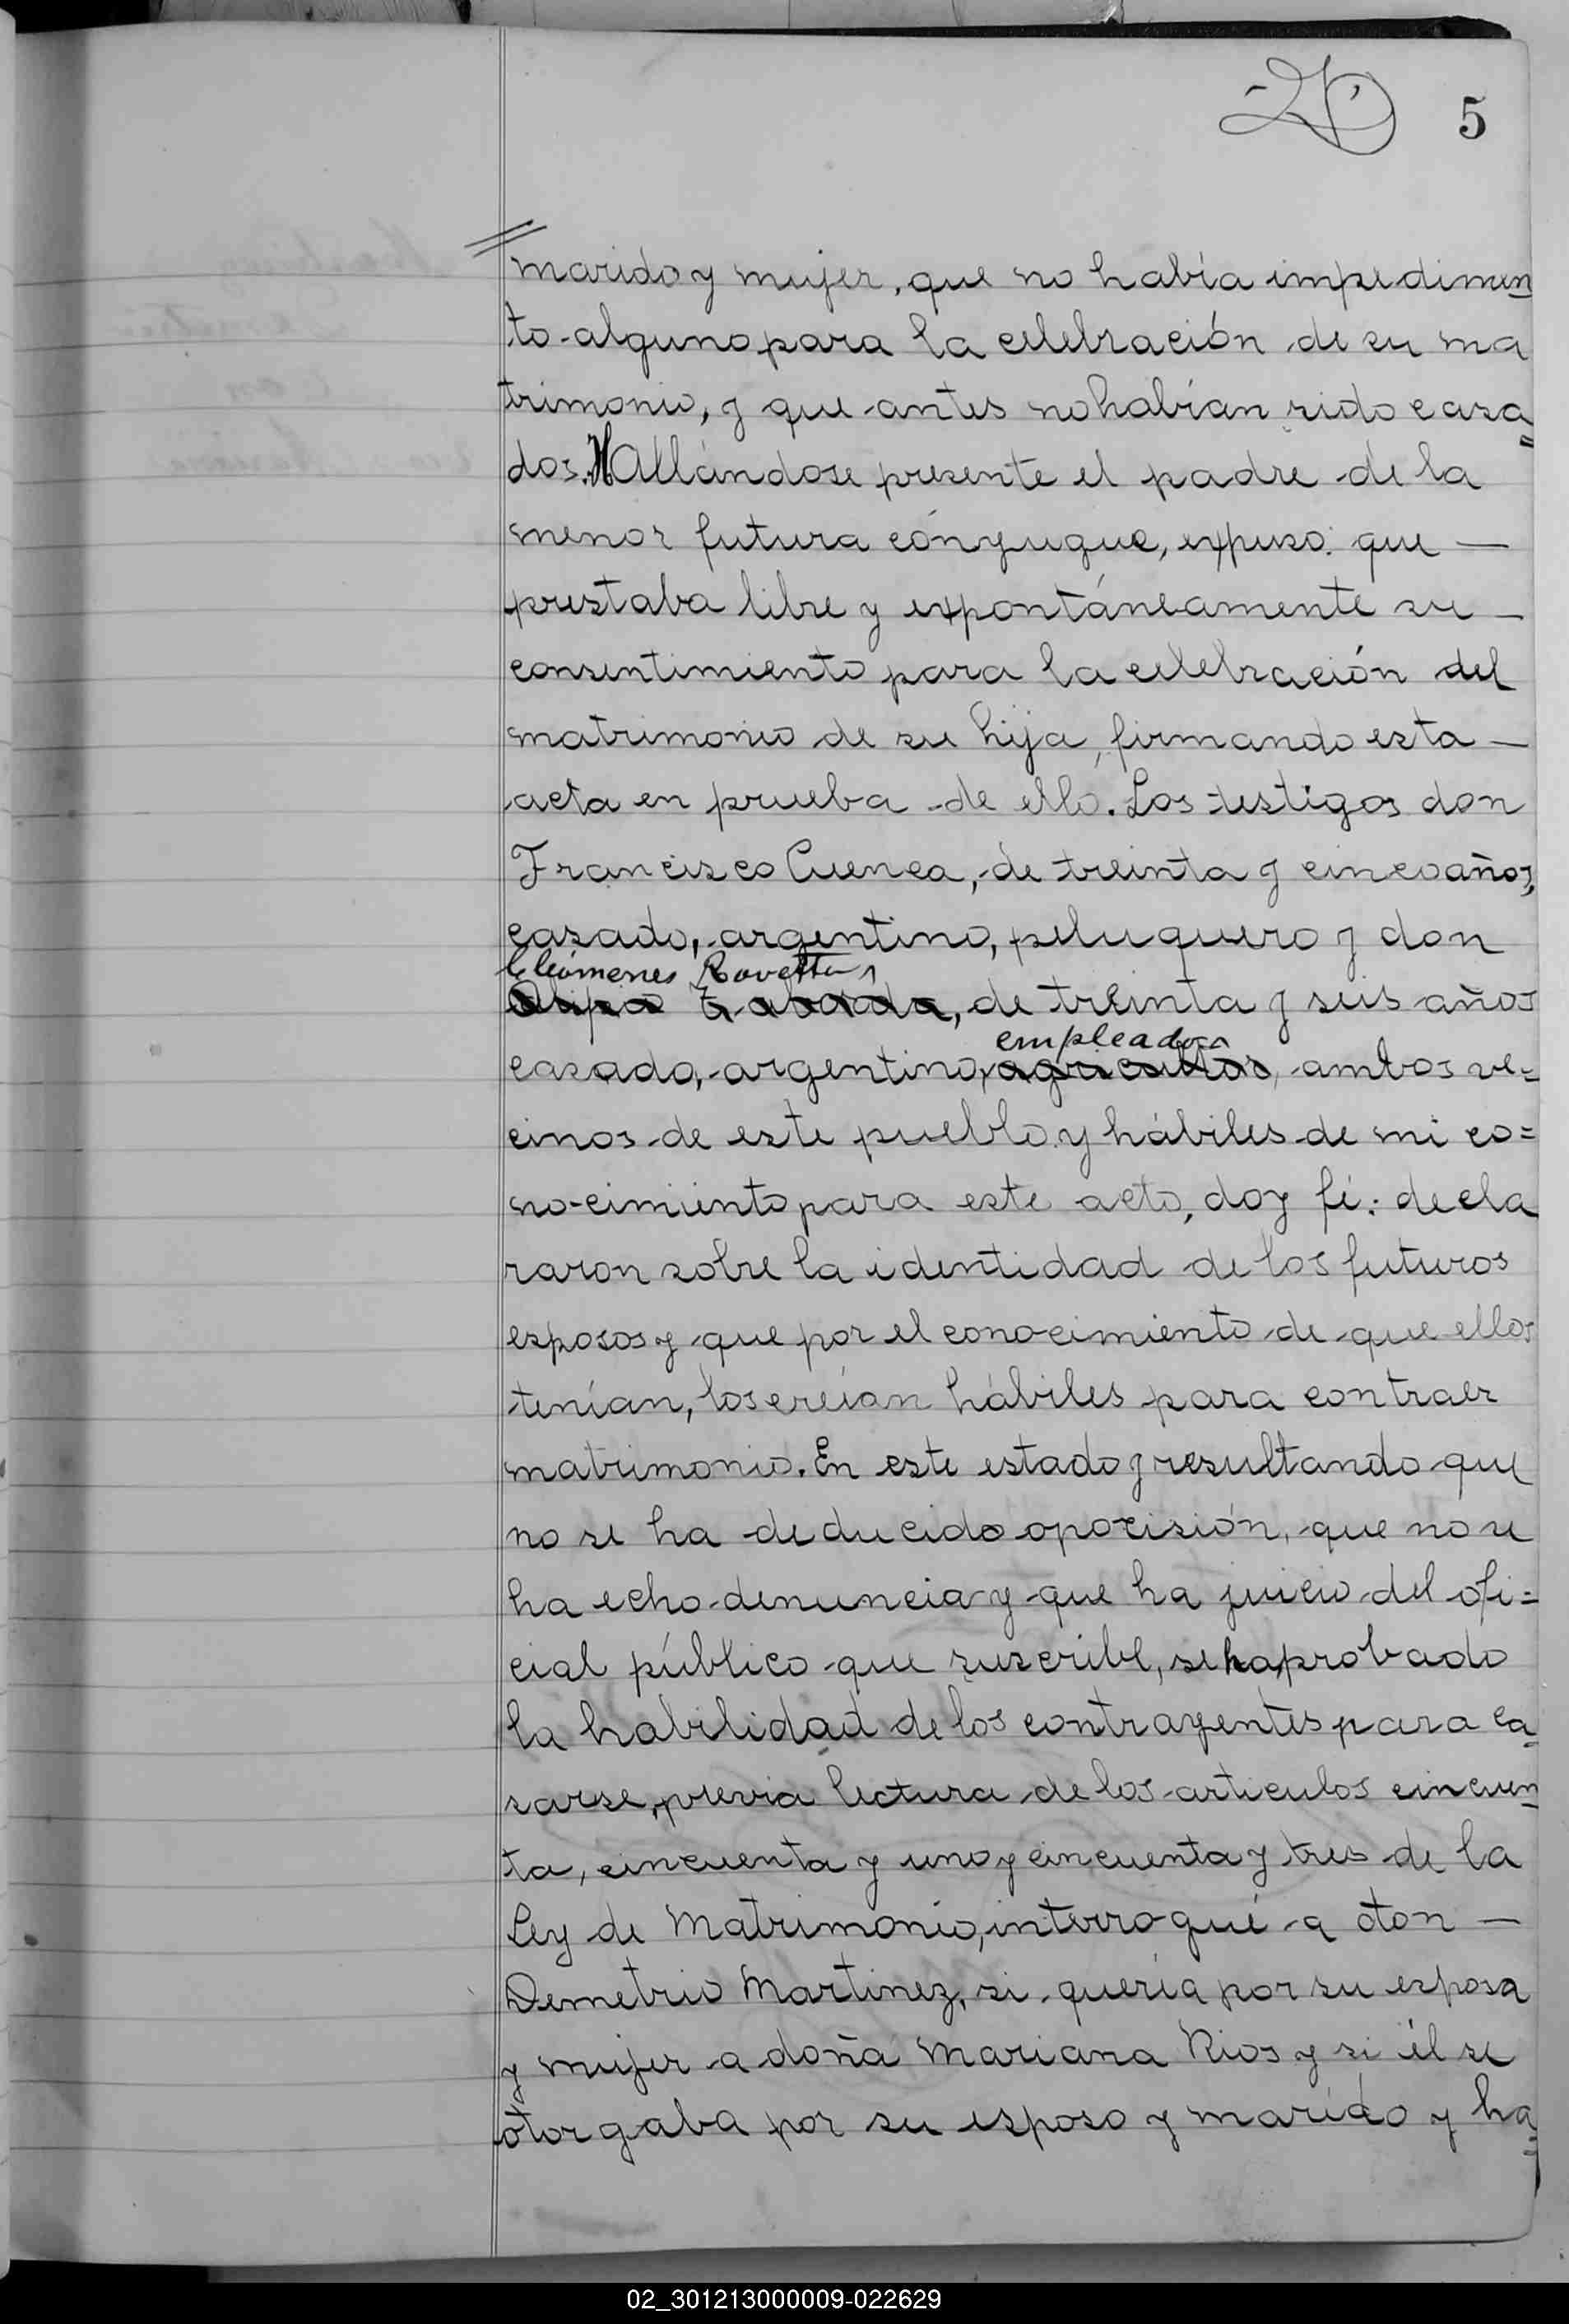 5
marido y mujer, que no había impedimen
to alguno para la celebración de su ma
trimonio, y que antes no habían sido casa=
dos. Hallándose presente el padre de la
menor futura cónyugue, expuso: que —
prestaba libre y expontáneamente su —
consentimiento para la celebración del
matrimonio de su hija, firmando esta —
acta en prueba de ello. Los testigos don
Francisco Cuenca, de treinta y cinco años,
casado, argentino, peluquero y don
Cleómenes Rovetta
, de treinta y seis años
empleado
casado, argentino, agricultor, ambos ve=
cinos de este pueblo y hábiles de mi co=
nocimiento para este acto, doy fé: decla
raron sobre la identidad de los futuros
esposos y que por el conocimiento de que ellos
tenían, los creían hábiles para contraer
matrimonio. En este estado y resultando que
no se ha deducido oposisión, que no se
ha echo denuncia y que ha juicio del ofi=
cial público que suscribe, se ha probado
la habilidad de los contrayentes para ca=
sarse, previa lectura de los articulos cincuen
ta, cincuenta y uno y cincuenta y tres de la
Ley de Matrimonio, interrogué a don —
Demetrio Martinez, si quería por su esposa
y mujer a doña Mariana Rios y si él se
otorgaba por su esposo y marido y ha=
02_301213000009-022629